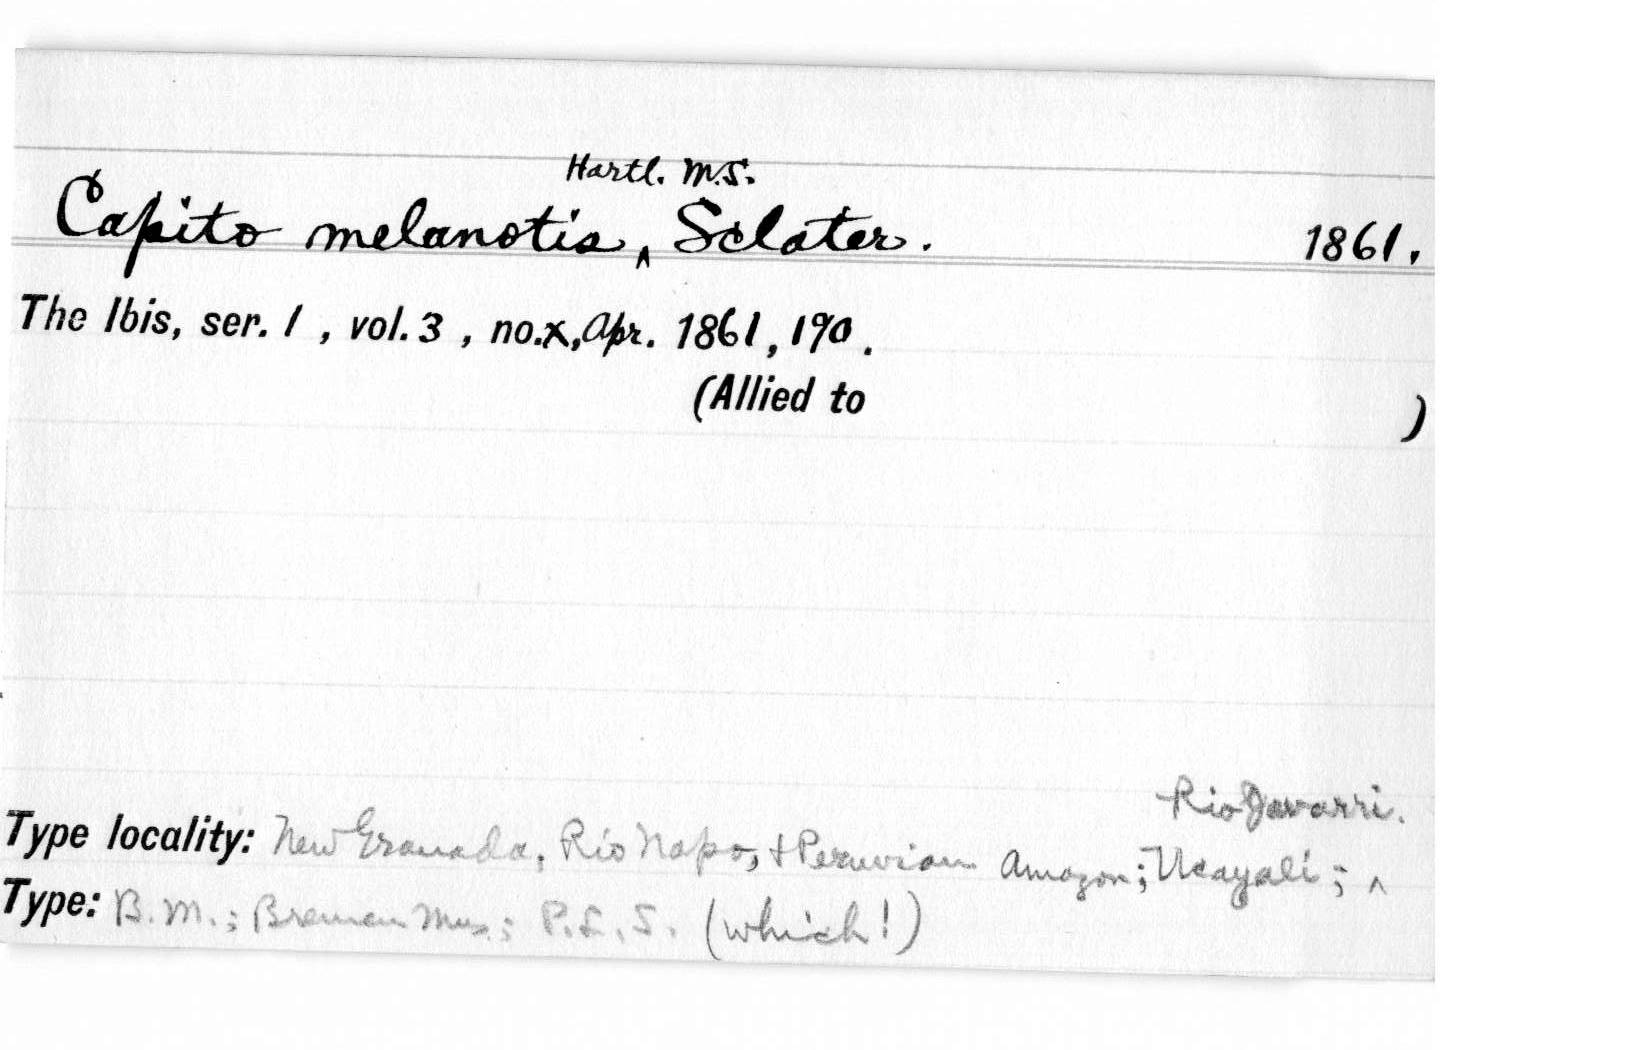 Hartl. M.S.
Capito melanotis, ^ Sclater. 1861.
The Ibis, ser. 1, vol. 3, no.x, Apr. 1861, 190.
(Allied to )
Rio Javarri.
Type locality: New Granada, Rio Napo, + Peruvian Amazon; Ucayali; ^
Type: B.M.; Bremen Mus.; P.L.S. (which!)